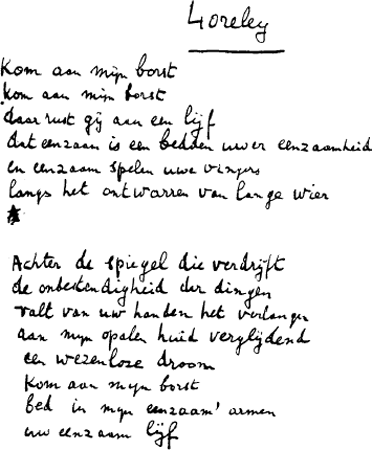 Loreley
Kom aan mijn borst
kom aan mijn borst
daar rust gij aan een lijf
dat eenzaam is een bedden uwer eenzaamheid
en eenzaam spelen uwe vingers
langs het ontwarren van lange wier
Achter de spiegel die verdrijft
de onbestendigheid der dingen
valt van uw handen het verlangen
aan mijn opalen huid verglijdend
een wezenloze droom
Kom aan mijn borst
bed in mijn eenzaam' armen
uw eenzaam lijf